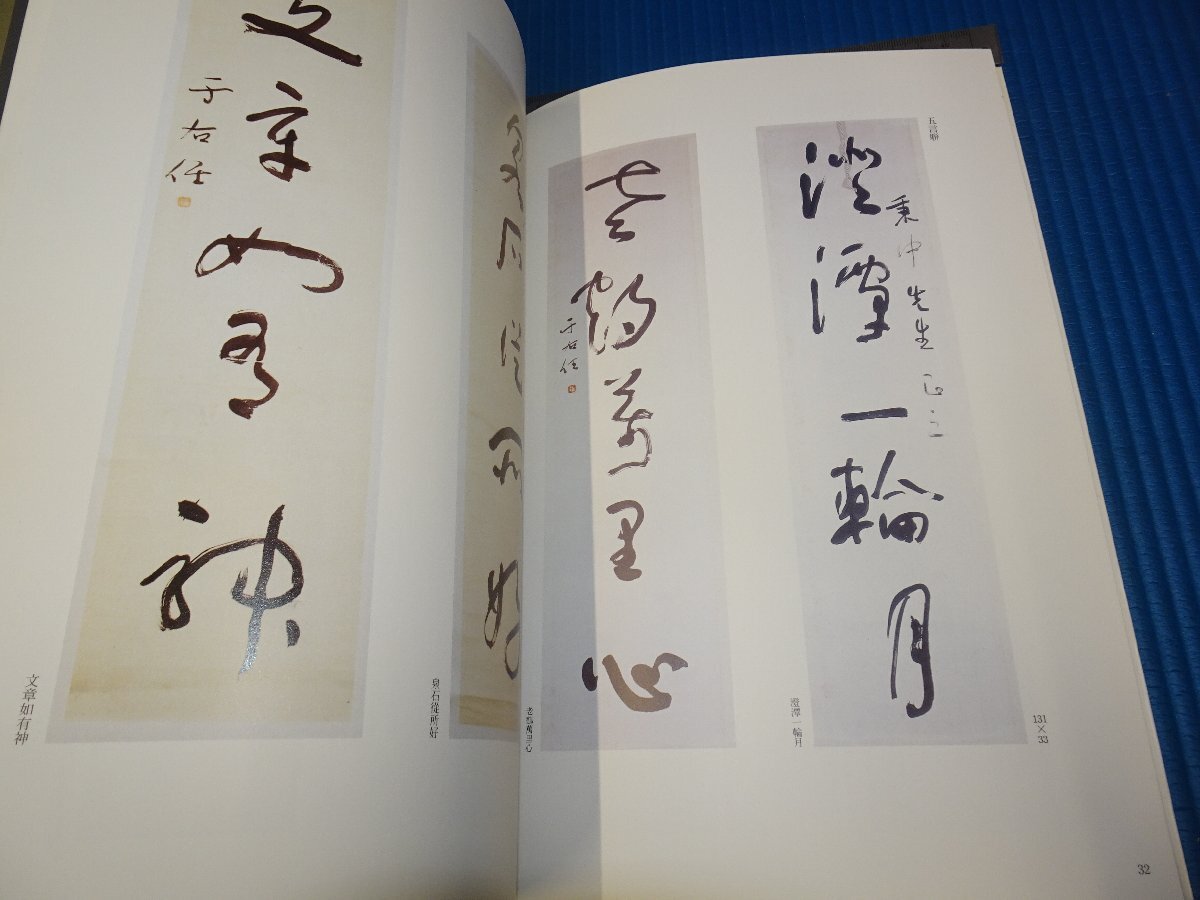 五言聯
澄潭一輪月
秉中先生正之
131×33
澄潭一輪月
老鶴萬里心
于右任
老鶴萬里心
32
泉石從所好
泉石從所好
文章如有神
于右任
文章如有神